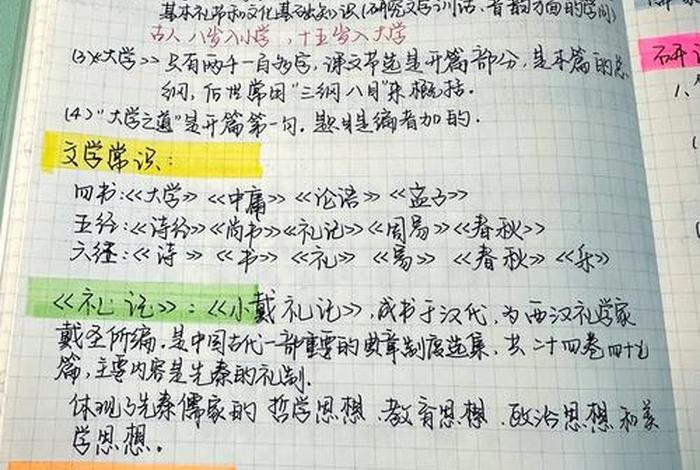 基本礼节和文化基础知识(研究文字训诂、音韵方面的学问)
古人八岁入小学,十五岁入大学
(3)《大学》只有两千一百多字,课文节选是开篇部分,是本篇的总
纲,后世常用“三纲八目”来概括.
(4)“大学之道”是开篇第一句.题目是编者加的.
文学常识:
四书:《大学》《中庸》《论语》《孟子》
五经:《诗经》《尚书》《礼记》《周易》《春秋》
六经:《诗》《书》《礼》《易》《春秋》《乐》
《礼记》:《小戴礼记》,成书于汉代,为西汉礼学家
戴圣所编.是中国古代一部重要的典章制度选集,共二十四卷四十九
篇,主要内容是先秦的礼制.
体现了先秦儒家的哲学思想、教育思想、政治思想和美
学思想。